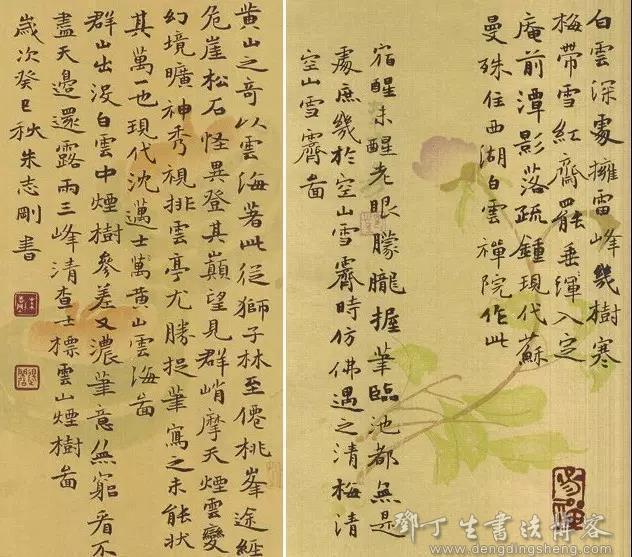 白雲深處擁雷峰幾樹寒
梅帶雪紅齋罷垂渾入定
庵前潭影落疏鍾現代蘇
曼殊住西湖白雲禪院作此
宿醒未醒老眼朦朧握筆臨池都無是
處庶幾於空山雪霽時仿佛遇之清梅清
空山雪霽啚
黄山之奇以雲海著此從獅子林至僊桃峯途經
危崖松石怪異登其巔望見群峭摩天煙雲變
幻境曠神秀視排雲亭尤勝捉筆寫之未能狀
其萬一也現代沈邁士萬黄山雲海啚
群山出没白雲中煙樹參差又濃筆意無窮看不
盡天邊還露兩三峰清查士標雲山煙樹啚
歲次癸巳秋朱志剛書
鄧丁生書法博客
www.dengdingsheng.com